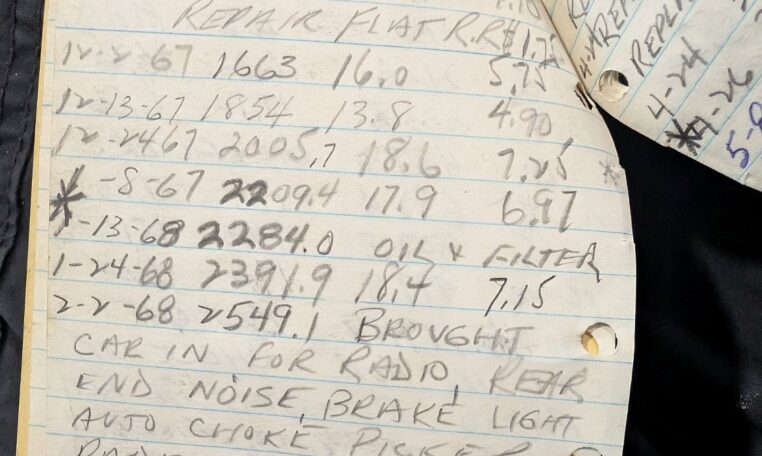 REPAIR FLAT R.R $1.75
12-2-67 1663 16.0 5.75
12-13-67 1854 13.8 4.90
12-2467 2005,7 18.6 7.25 *
* -8-67 2209.4 17.9 6.97
1-13-68 2284.0 OIL & FILTER
1-24-68 2391.9 18.4 7.15
2-2-68 2549.1 BROUGHT
CAR IN FOR RADIO, REAR
END NOISE, BRAKE LIGHT
AUTO CHOKE
REPLA
4-24
*4-26
5-8